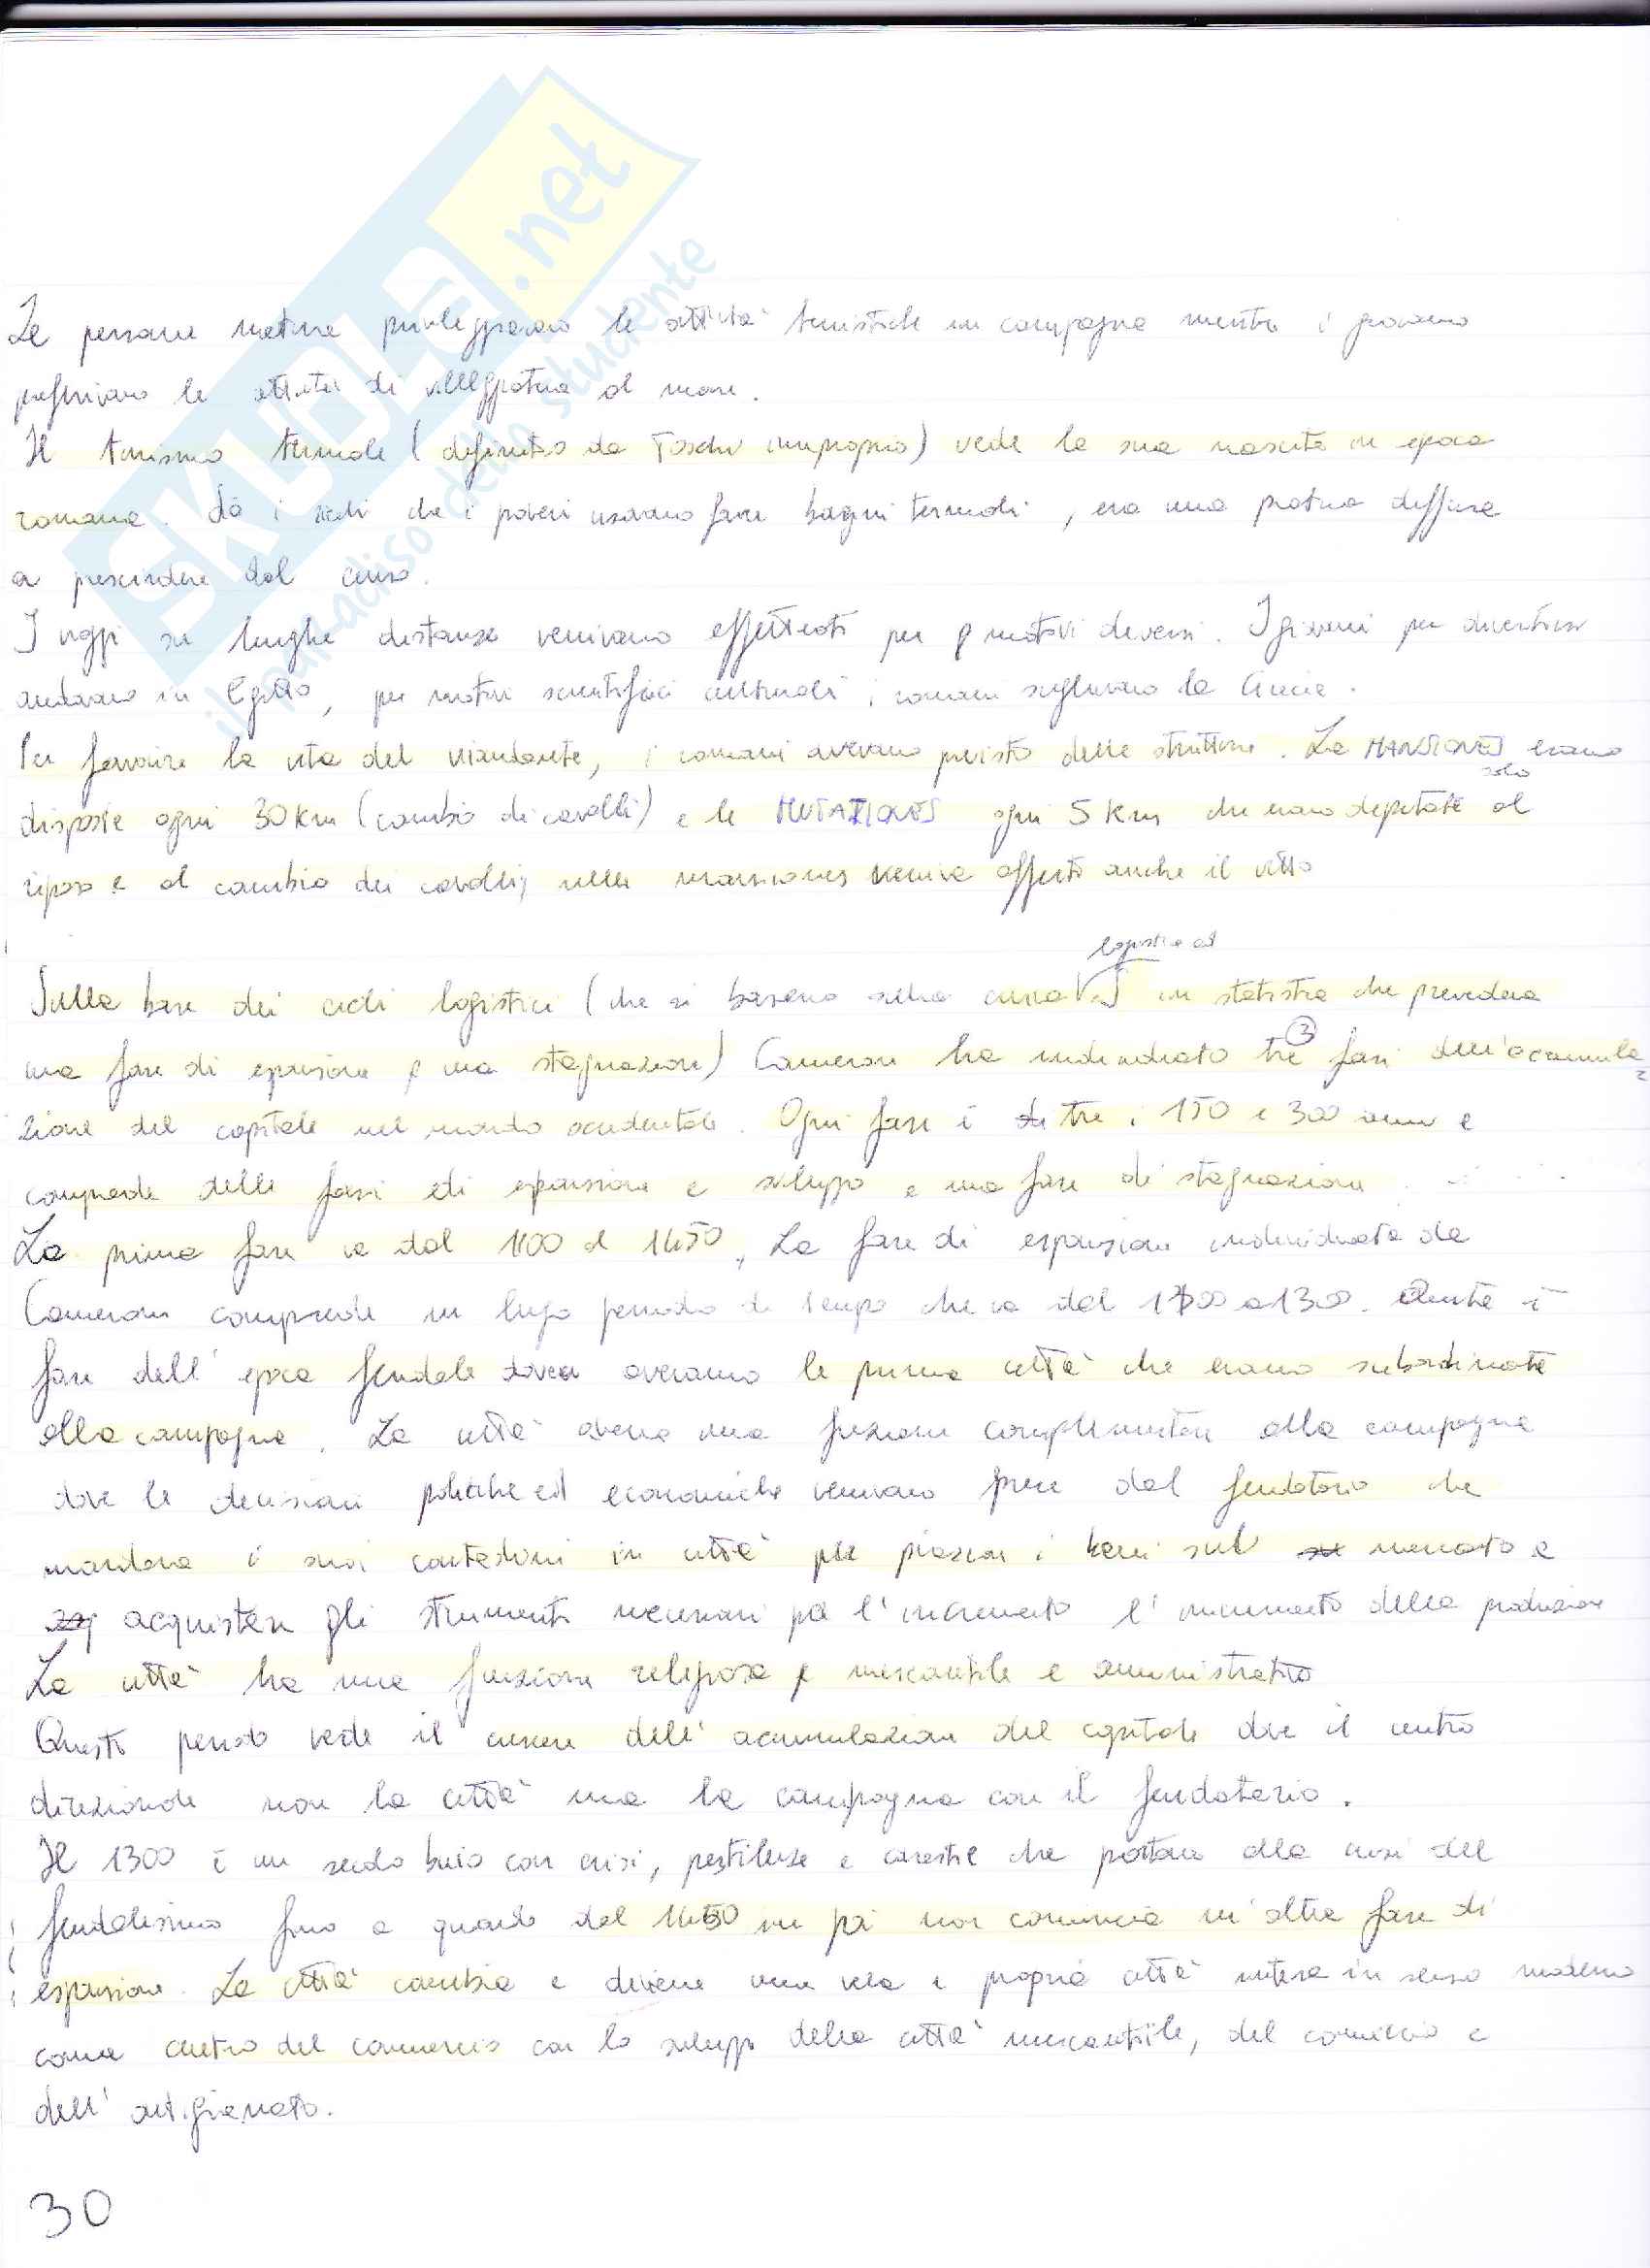 SKUOLA.net
il paradiso dello studente
Le persone mature privilegiavano le attività turistiche in campagna mentre i giovani
preferivano le attività di villeggiatura al mare.
Il turismo termale (definito da Toschi improprio) vede la sua nascita in epoca
romana. Sia i ricchi che i poveri usavano fare bagni termali, era una pratica diffusa
a prescindere dal censo.
I viaggi su lunghe distanze venivano effettuati per motivi diversi. I giovani per divertirsi
andavano in Egitto, per motivi scientifici culturali i romani sceglievano la Grecia.
Per favorire la vita del viandante, i romani avevano previsto delle strutture. Le MANSIONES erano
solo
disposte ogni 30 km (cambio di cavalli) e le MUTATIONES ogni 5 km che erano deputate al
riposo e al cambio dei cavalli, nelle mansiones veniva offerto anche il vitto
logistica ad
Sulla base dei cicli logistici (che si basano sulla curva in statistica che prevedeva
una fase di espansione e una stagnazione) Cameron ha individuato tre 3 fasi dell'accumula
zione del capitale nel mondo occidentale. Ogni fase è tra i 150 e 300 anni e
comprende delle fasi di espansione e sviluppo e una fase di stagnazione
La prima fase va dal 1100 al 1450, La fase di espansione individuata da
Cameron comprende un lungo periodo di tempo che va dal 1100 a 1300. Questa è
fase dell'epoca feudale dove avevamo le prime città che erano subordinate
alla campagna. La città aveva una funzione complementare alla campagna
dove le decisioni politiche ed economiche venivano prese dal feudatario che
mandava i suoi contadini in città per piazzare i beni sul mercato e
acquistare gli strumenti necessari per l'incremento l'incremento della produzione
La città ha una funzione religiosa e mercantile e amministrativa
Questo periodo vede il nascere dell'accumulazione del capitale dove il centro
direzionale non la città ma la campagna con il feudatario.
Il 1300 è un secolo buio con crisi, pestilenze e carestie che portano alla crisi del
feudalesimo fino a quando dal 1450 in poi non comincia un'altra fase di
espansione. La città cambia e diviene una vera e propria città intesa in senso moderno
come centro del commercio con lo sviluppo della città mercantile, del commercio e
dell'artigianato.
30